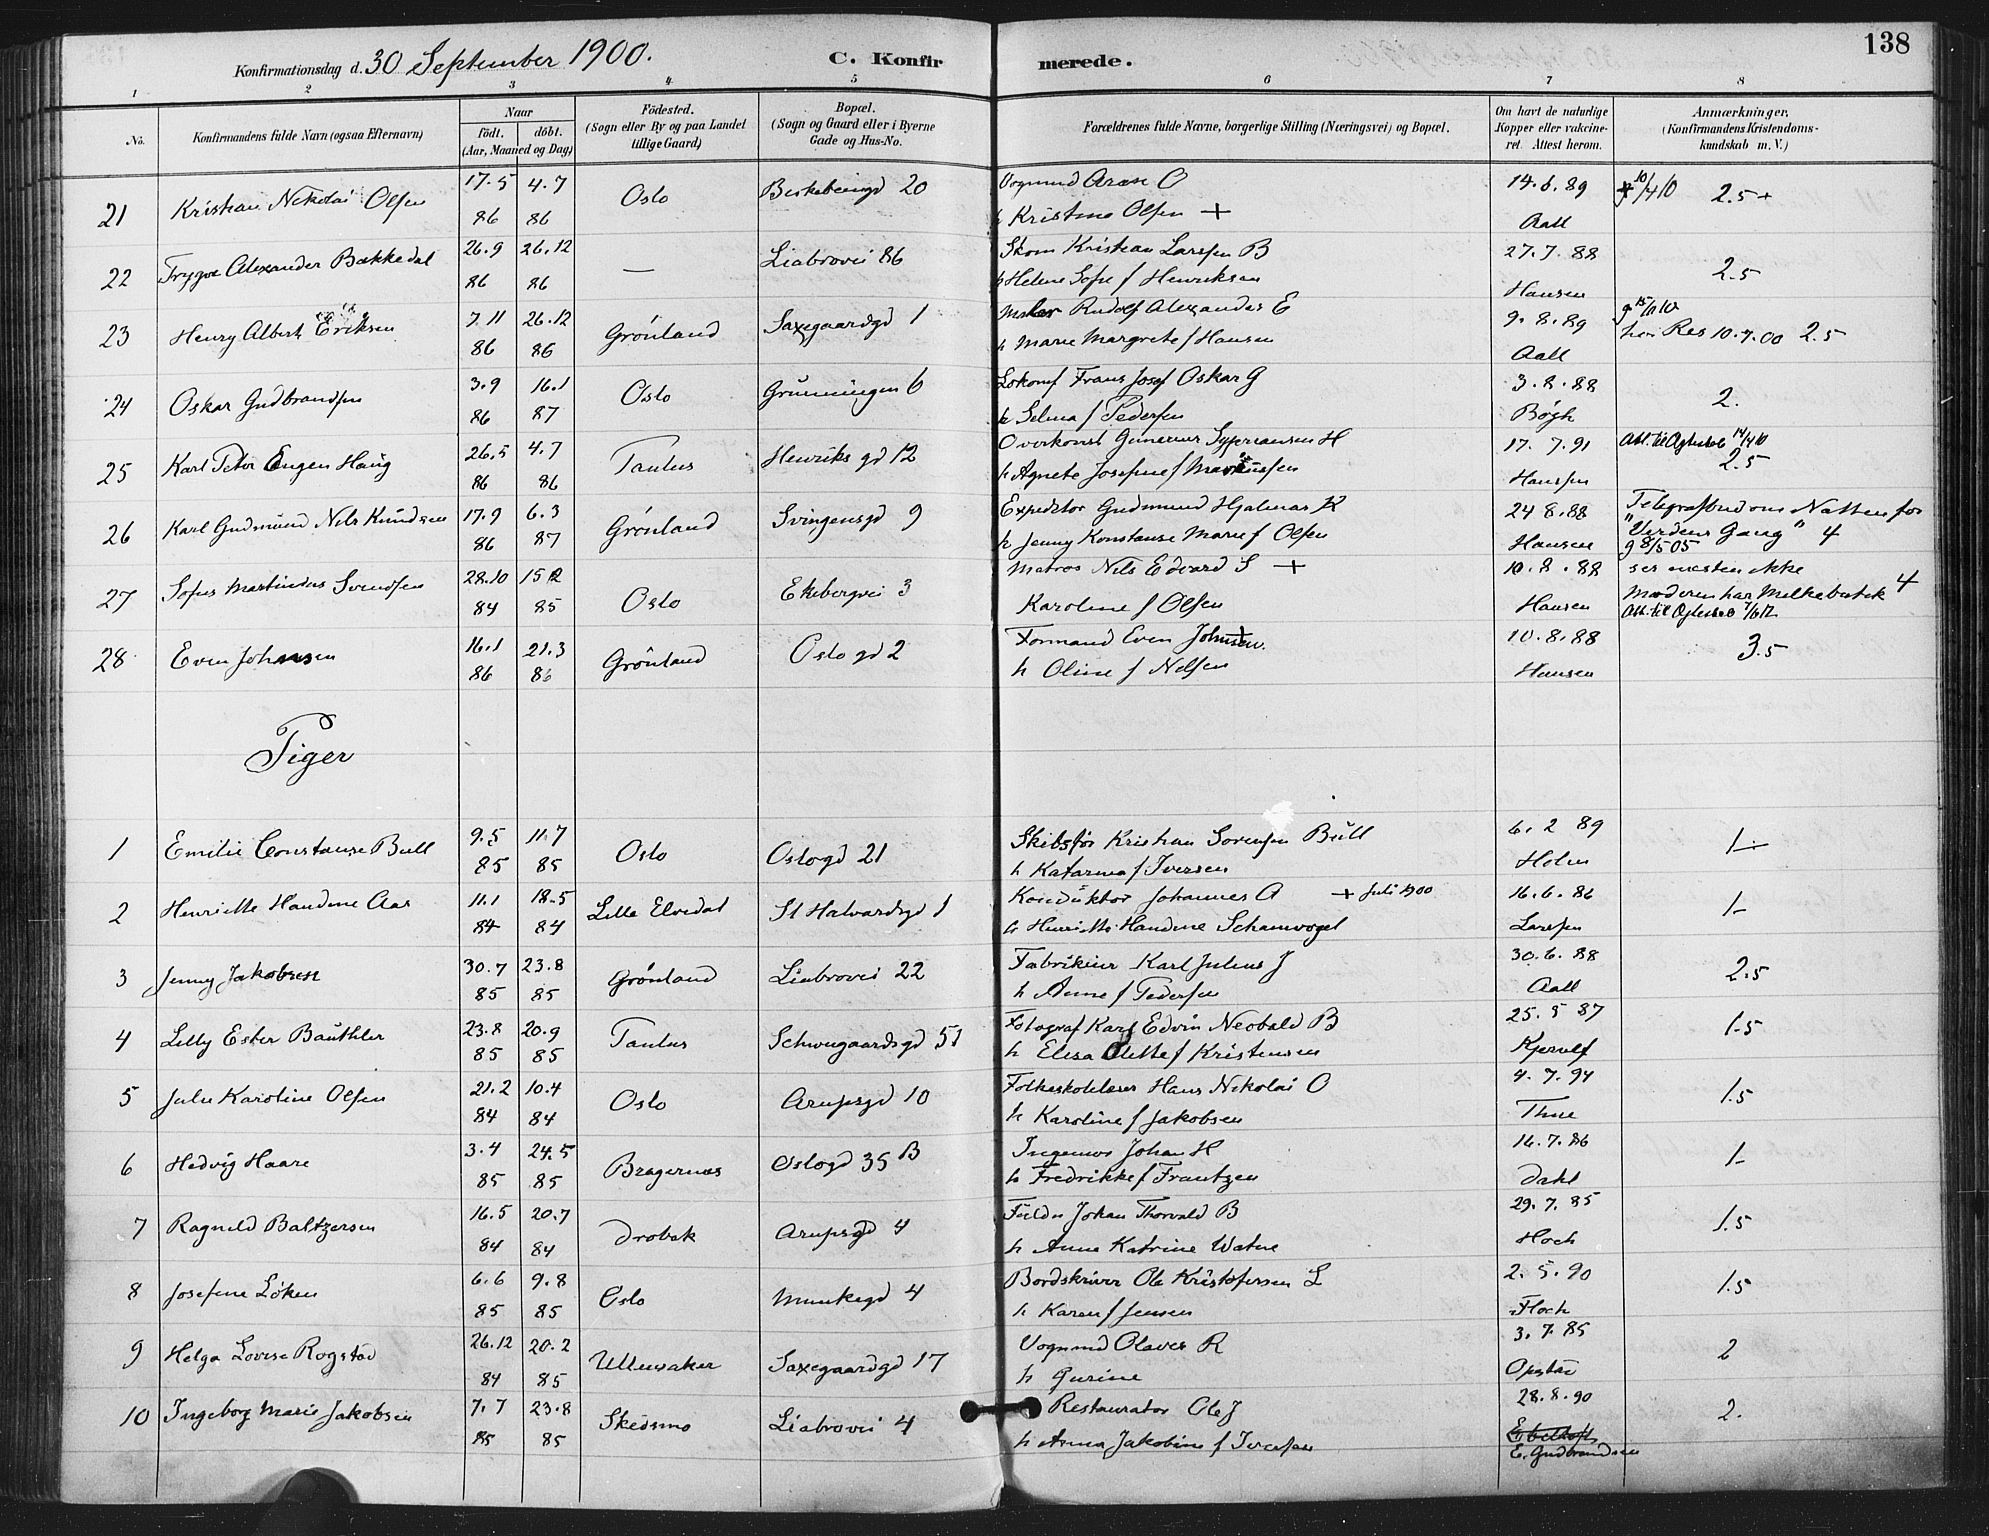 138
Konfirmationsdag d. 30 September 1900. C. Konfirmerede.
1 2 3 4 5 6 7 8
No. Konfirmandens fulde Navn (ogsaa Efternavn) Naar født. døbt. (Aar, Maaned og Dag) Födested. (Sogn eller By og paa Landet tillige Gaard) Bopæl. (Sogn og Gaard eller i Byerne Gade og Hus-No. Forældrenes fulde Navne, borgerlige Stilling (Næringsvei) og Bopæl. Om havt de naturlige Kopper eller vakcineret. Attest herom. Anmærkninger. (Konfirmandens Kristendomskundskab m. V.)
21 Kristian Nikolai Olsen 17.5 86 4.7 86 Oslo 20 Vognmd O 14.6.89 2.5 +
h Kristine Olsen + Aall
22 Trygve Alexander Bækkedal 26.9 86 26.12 86 — Liabrovei 86 Skom Kristian Larssen B 27.7.88 2.5
h Helene Sofie f Henriksen Hansen
23 Henry Albert Eriksen 7.11 86 26.12 86 Grönland Saxegaardsgd 1 Maler Rudolf Alexander E 9.8.89
h Marie Margrete f Hansen Aall Res 10.7.00 2.5
24 Oskar Gudbrandsen 3.9 86 16.1 87 Oslo Grünningen 6 Lokomf Frans Josef Oskar G 3.8.88 2.
h Selma f Pedersen Bögh
25 Karl Peter Eugen Haug 26.5 86 4.7 86 Paulus Henriks gd 12 Overkonst Gunerius H 17.7.91 Att. til 14/4 10
h Agnete Josefine f Hanssen 2.5
26 Karl Gudmund Nils Knudsen 17.9 86 6.3 87 Grönland Svingensgd 9 Expeditör Gudmund Hjalmar K 24.8.88 Telegrafbud om Natten for
h Jenny Konstanse Marie f Olsen Hansen "Verdens Gang" 4
g 8/5 05
27 Sofus Martinius Svendsen 28.10 84 15.2 85 Oslo Ekebergvei 3 Matros Nils Edvard S + 10.8.88 ser næsten ikke
Karoline f Olsen Hansen Moderen har Melkebutik 4
28 Even Johansen 16.1 86 21.3 86 Grönland Oslo gd 2 Formand Even 10.8.88 3.5
h Oline f Nelsen Hansen
Piger
1 Emilie Constanse Bull 9.5 85 11.7 85 Oslo Oslogd 21 Skibsför Kristian Sorensen Bull 6.2 89 1-
h Katarina f Iversen Holm
2 Henriette Handine Aas 11.1 84 18.5 84 Lille Elvedal St Halvardsgd 1 Konduktör Johannes A + Juli 1900 16.6.86 1-
h Henriette Handine Larssen
3 Jenny Jakobsen 30.7 85 23.8 85 Grönland Liabrovei 22 Fabrikeier Karl Julius J 30.6.88 2.5
h Anne f Pedersen Aall
4 Lilly Ester Bauthler 23.8 85 20.9 85 Paulus Schweigaardsgd 51 Fotograf Karl Edvin Neobald B 25.5 87 1.5
h Elisa Olette f Kristensen Kjerulf
5 Julie Karoline Olsen 21.2 84 10.4 84 Oslo Arupsgd 10 Folkeskolelærer Hans Nikolai O 4.7.94 1.5
h Karoline f Jakobsen Thue
6 Hedvig Haare 3.4 85 24.5 85 Bragernæs Oslogd 35 B Ingeniør Johan H 16.7.86 1-
h Fredrikke f Frantzen Dahl
7 Ragnild Baltzersen 16.5 84 20.7 84 Dröbak Arupsgd 4 Johan Thorvald B 29.7.85 1.5
h Anne Katrine Watne Hoch
8 Josefine Löken 6.6 85 9.8 85 Oslo Munkegd 4 Bordskriver Ole Kristofersen L 2.5.90 1.5
h Karen f Jensen
9 Helga Lovise Rogstad 26.12 84 20.2 85 Ullensaker Saxegaardgd 17 Vognmd Olaves R 3.7.85 2
h Gurine Opstad
10 Ingeborg Marie Jakobsen 7.7 85 23.8 85 Skedsmo Liabrovei 4 Restauratör Ole J 28.8.90 2.
h Anna Jakobine f
E. Gudbrandsen